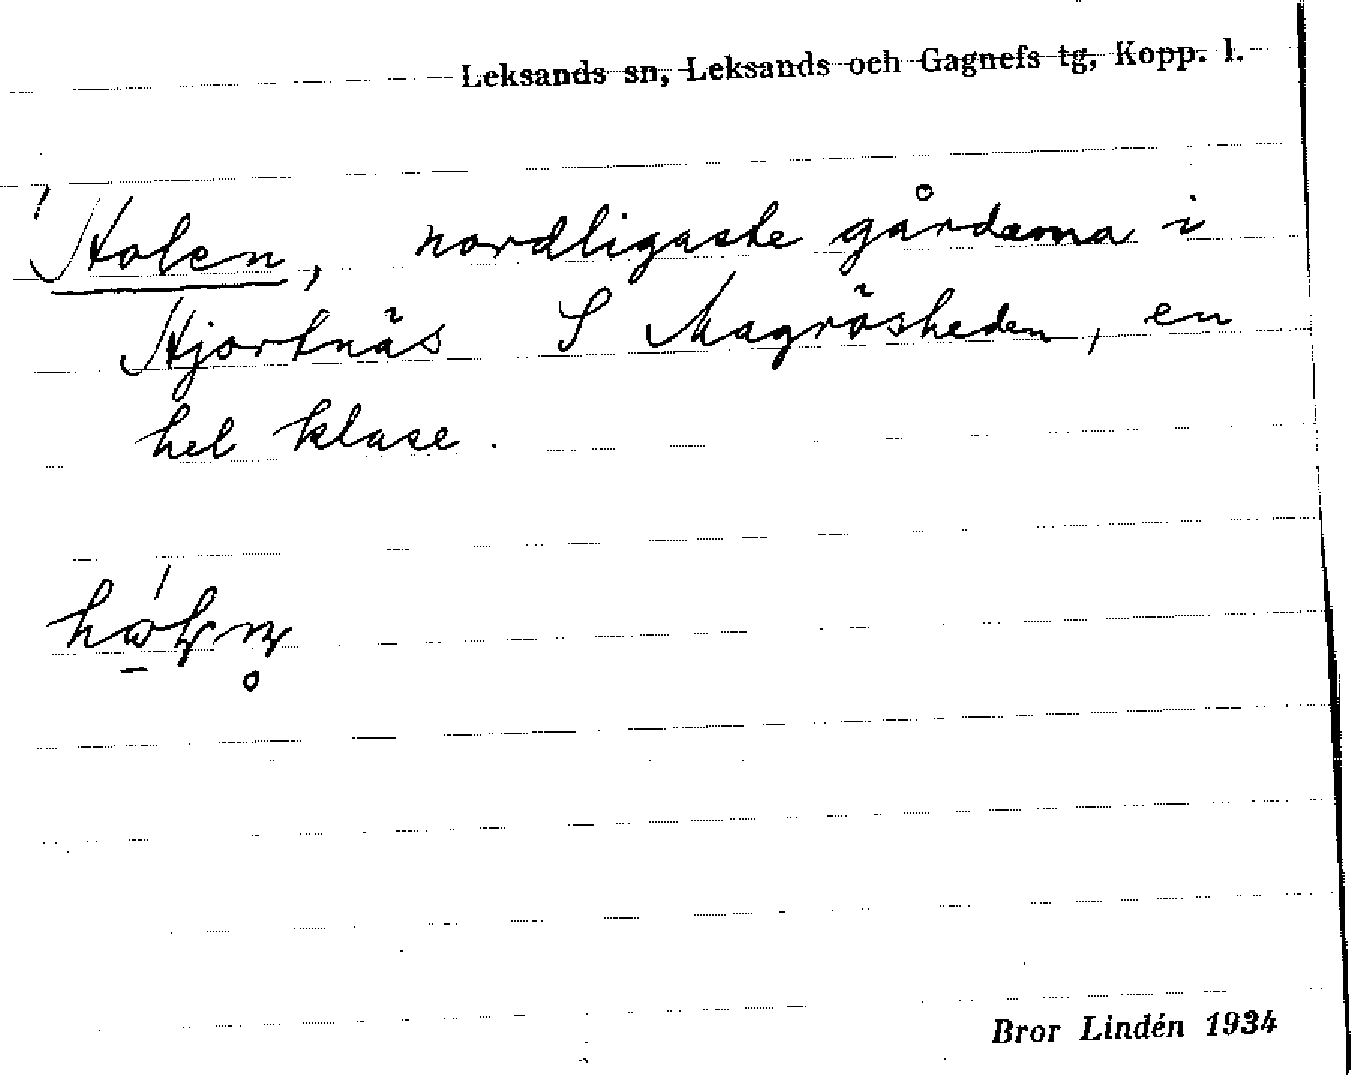 Leksands sn, Leksands och Gagnefs tg, Kopp. l.
Holen, nordligaste gårdarna i
Hjortnäs S Magråsheden, en
hel klase.
Bror Lindén 1934